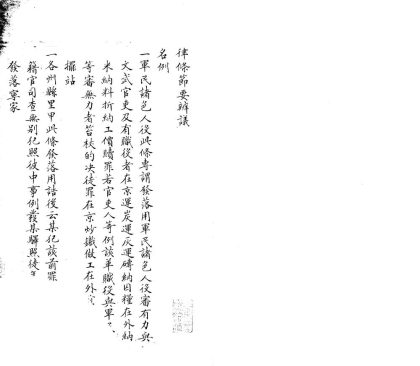 律條節要辨議
名例
一軍民諸色人役此條專謂發落用軍民諸色人役審有力與
文武官吏及有職役者在京運炭運灰運磚納囙糧在外納
米納料折納工價續罪若官吏人等例該革職役與軍
等審無力者笞杖的決徒罪在京炒鐵做工在外
擺站
一各州縣里甲此條發落用語後云某犯該前罪
籍官司查無別犯照彼中事例發某驛照徒
發落寧家